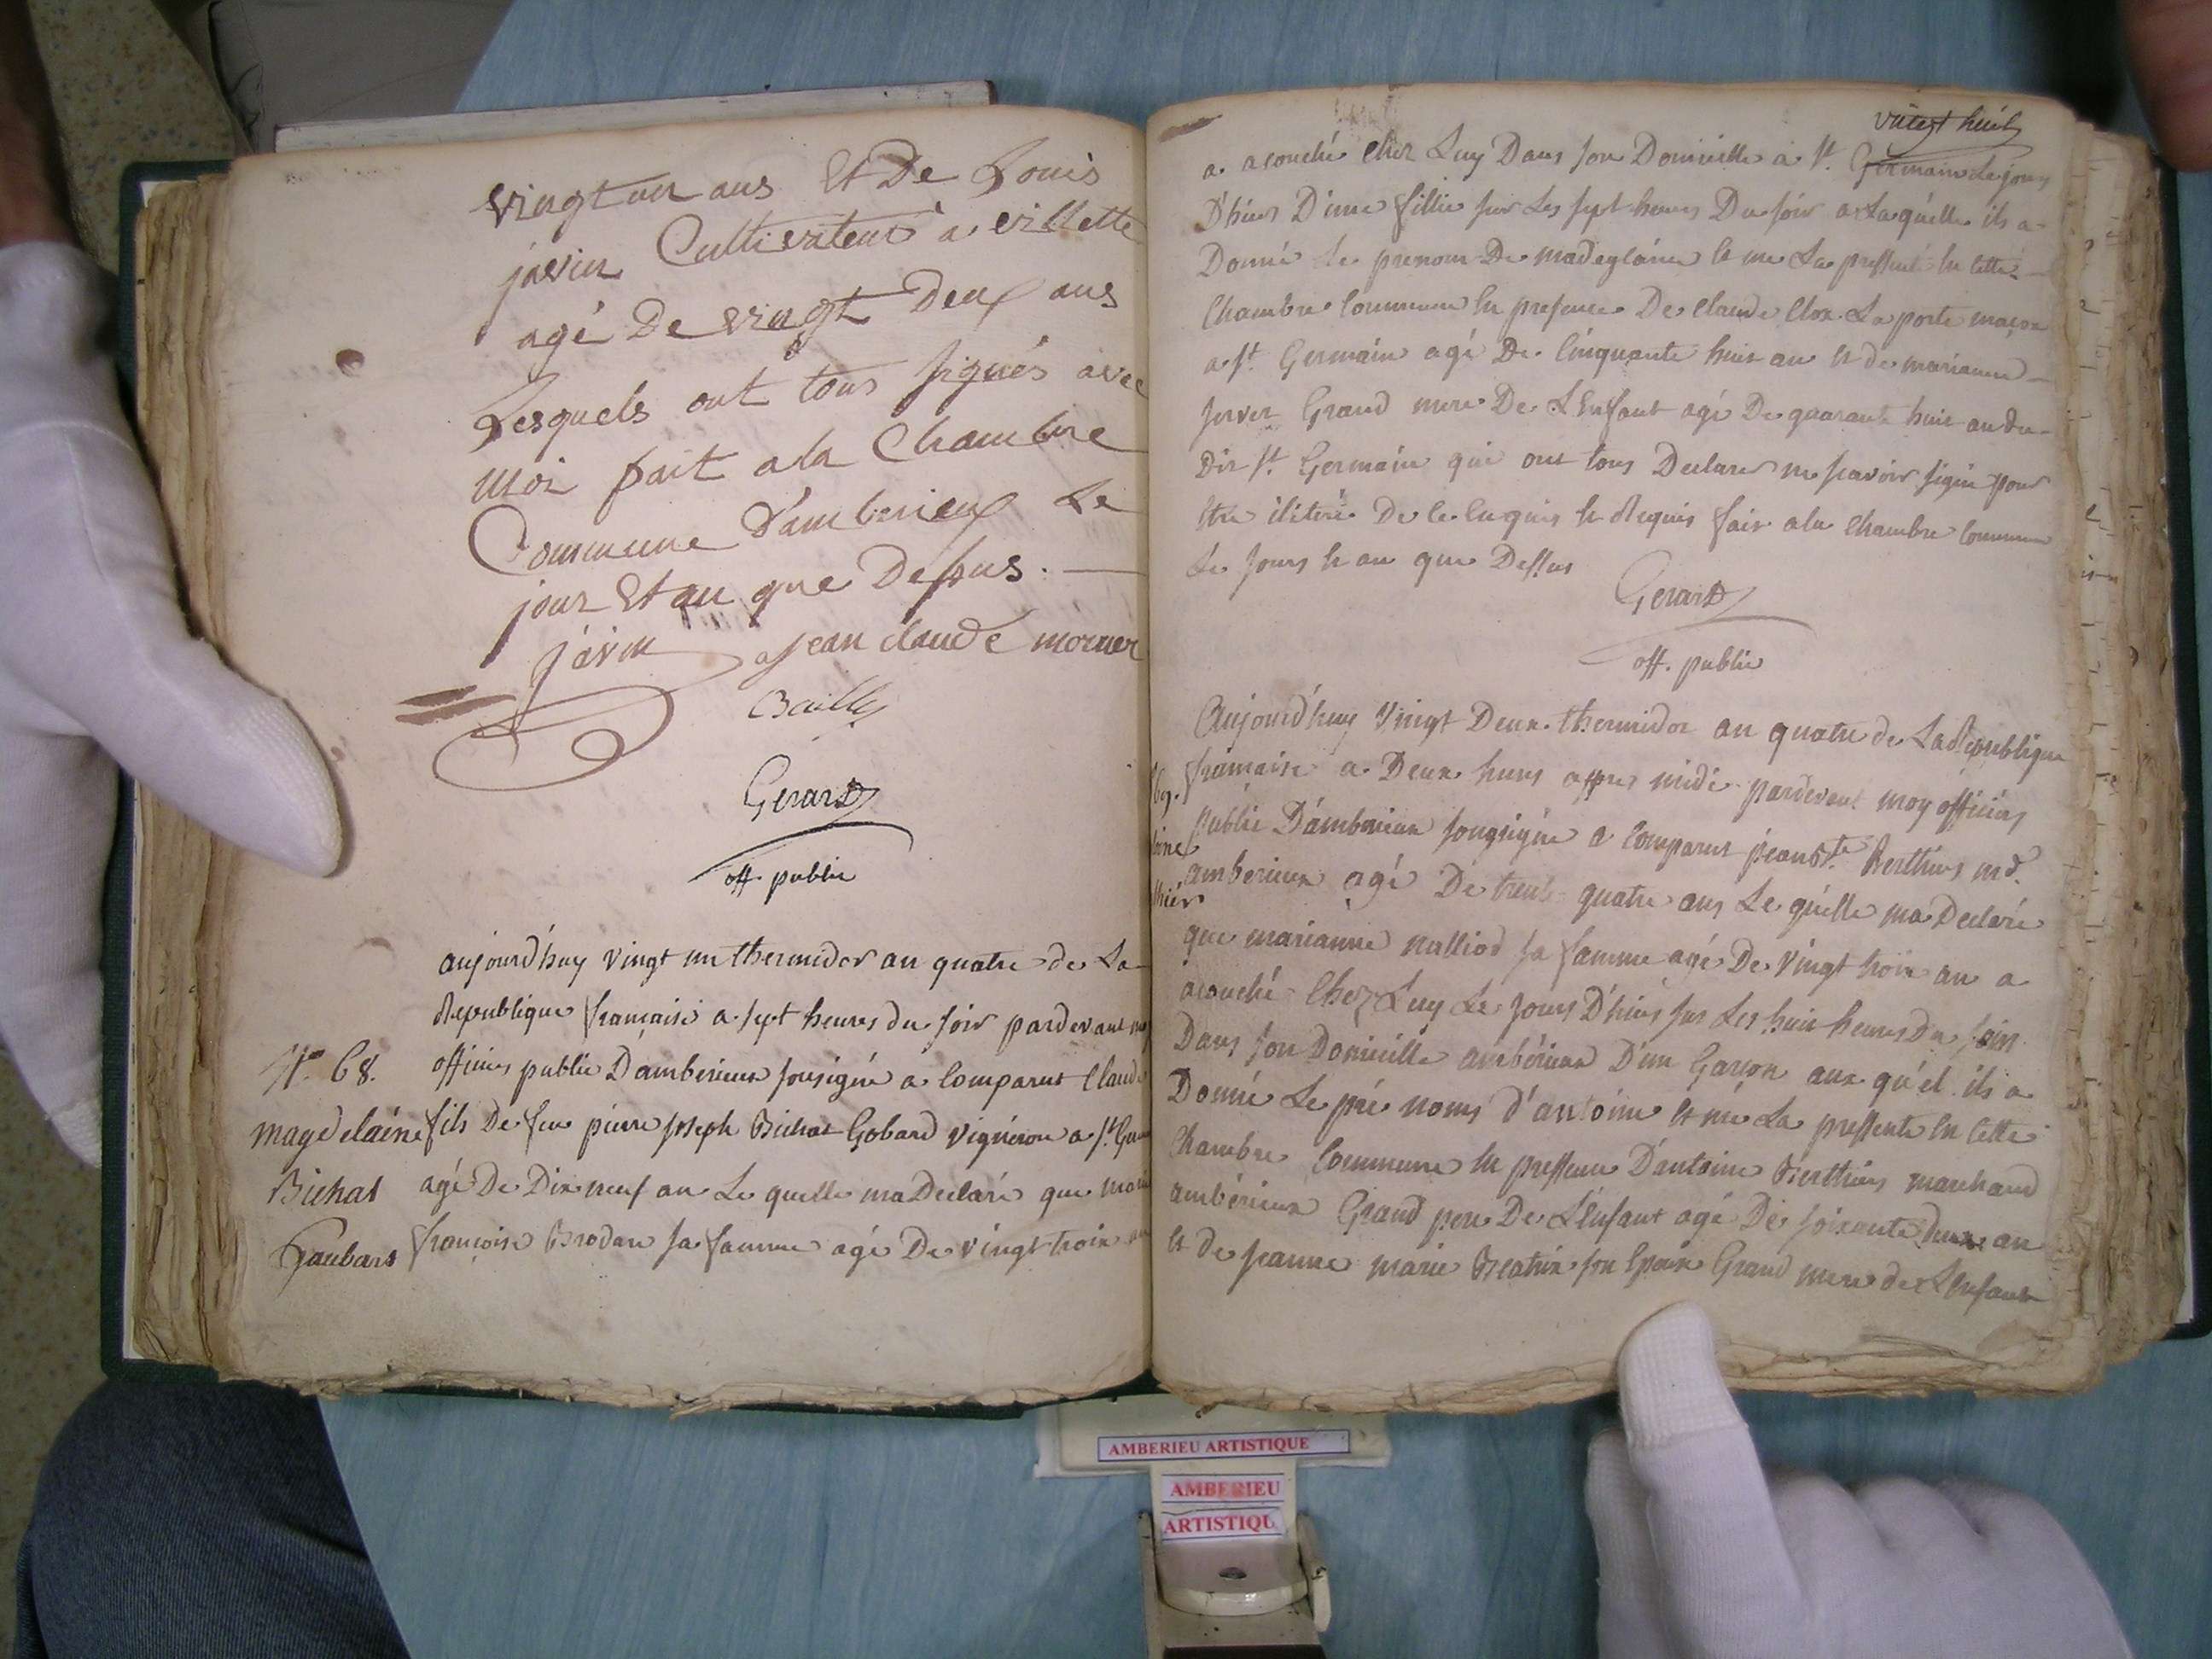 vingt un ans Et De Louis
javin Cultivateur a villette
agé De vingt Deux ans
Lesquels ont tous signés avec
moi fait a la Chambre
Commune d'amberieux Le
jour Et an que Dessus. —
javin jean claude morner
Bailly
Gerard
off. public
aujourd'huy vingt un thermidor an quatre de La
Republique francaise a sept heures du soir pardevant moy
officier public D'amberieux sousigné a comparut Claude
N.º 68.
magdelaine
Bichat
Gaubars
fils De feu pierre joseph Bichat Gobard vigneron a S.t Germ
agé De Dix neuf an Le quelle ma Declaré que marie
francoise Brodan sa famme agé De vingt trois an
vingt huit
a acouché chez Luy Dans son Domicille a S.t Germain de jour
D'hier D'une fillie sur Les sept heures Du soir a Laquelle ils a
Donné le prenom De madeglaine et me La pressenté en cette
Chambre Commune en presence De Claude Clox La porte maçon
a S.t Germain agé De Cinquante huit an et de marianne
jervet Grand mere De L'Enfant agé De quarante huit an du
dit S.t Germain qui ont tous Declaré ne scavoir signé pour
être ilitéré De ce Enquis et Requis fait a la Chambre Commune
Le jours et an que Dessus
Gerard
off. public
Aujourd'huy vingt Deux thermidor an quatre de La Republique
framaise a Deux hures appres midi pardevant moy officier
69.
toine
thier
public D'amberieux sousigné a comparut jean B.te Berthier m.d
amberieux agé De trente quatre ans Le quelle ma Declaré
que marianne nalliod sa famme agé De vingt trois an a
acouché Chez Luy Le jours D'hier sur Les huit heures Du soir
Dans son Domicille ambérieux D'un Garçon aux qu'el ils a
Donné Le pré noms d'antoine et me La pressenté en cette
Chambre Commune en pressence D'antoine Berthier marchand
ambérieux Grand pere De L'Enfant agé De soixante deux an
et de jeanne marie Beatrix son Epouse Grand mere de L'Enfant
AMBERIEU ARTISTIQUE
AMBERIEU
ARTISTIQU